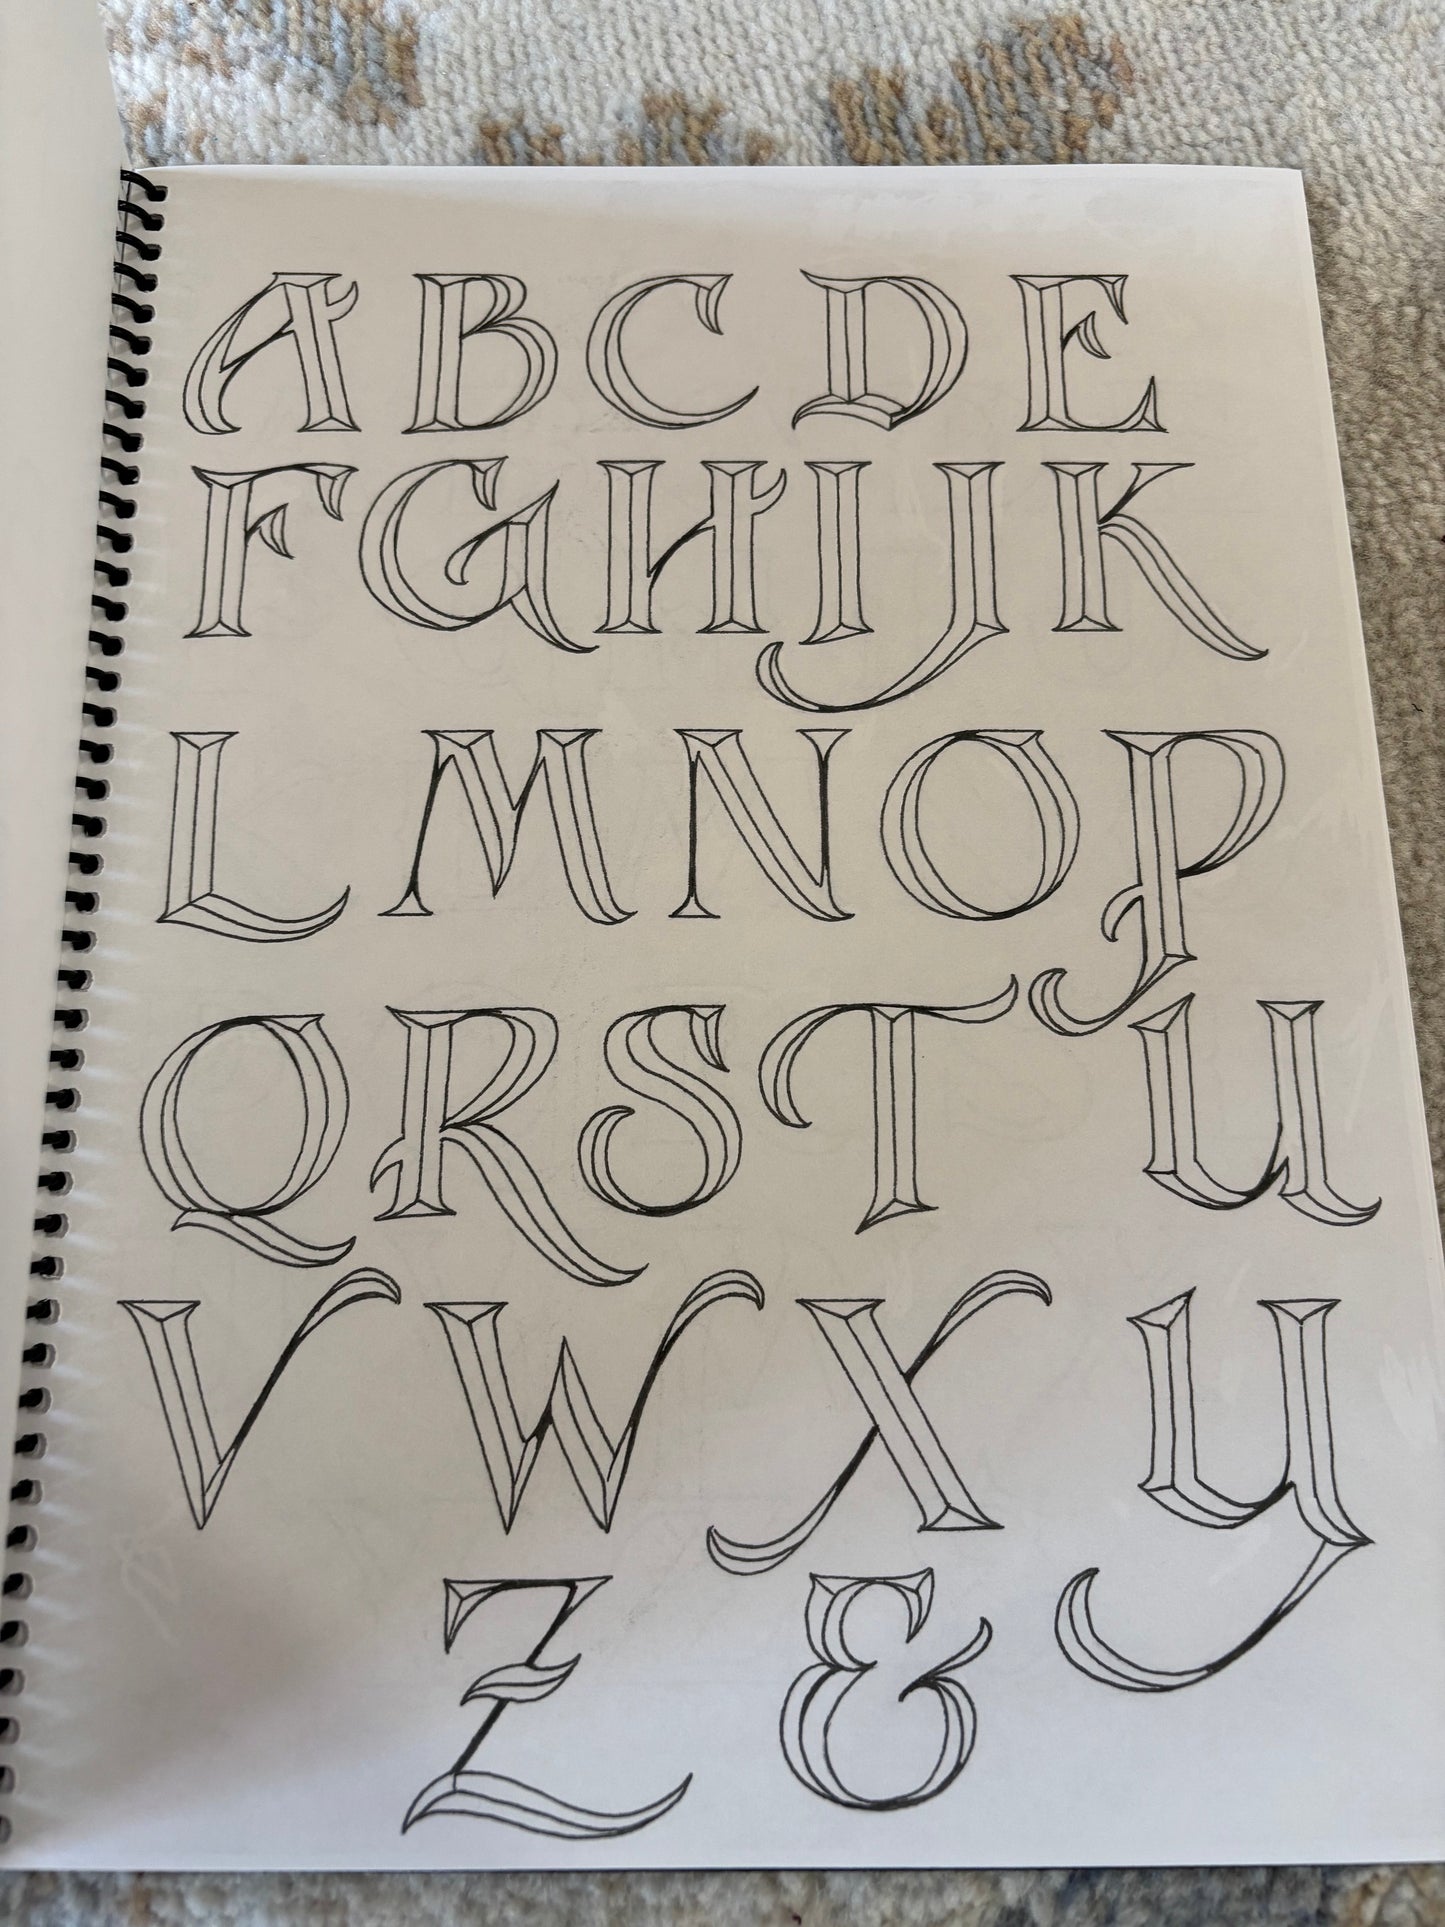 ABCDE
FGHIJK
LMNOP
QRSTU
VWXY
Z&